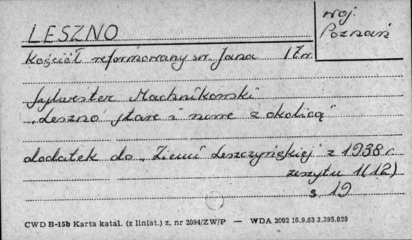 LESZNO
woj.
Poznań
Kościół reformowany św. Jana 17w.
Sylwester Machnikowski
"Leszno stare i nowe z okolicą"
dodatek do "Ziemi Leszczyńskiej" z 1938 r.
zeszytu 1(12)
s. 19
CWD B-15b Karta katal. (z liniat.) z. nr 2004/ZW/P — WDA 2092 16.9.63 3.395.020